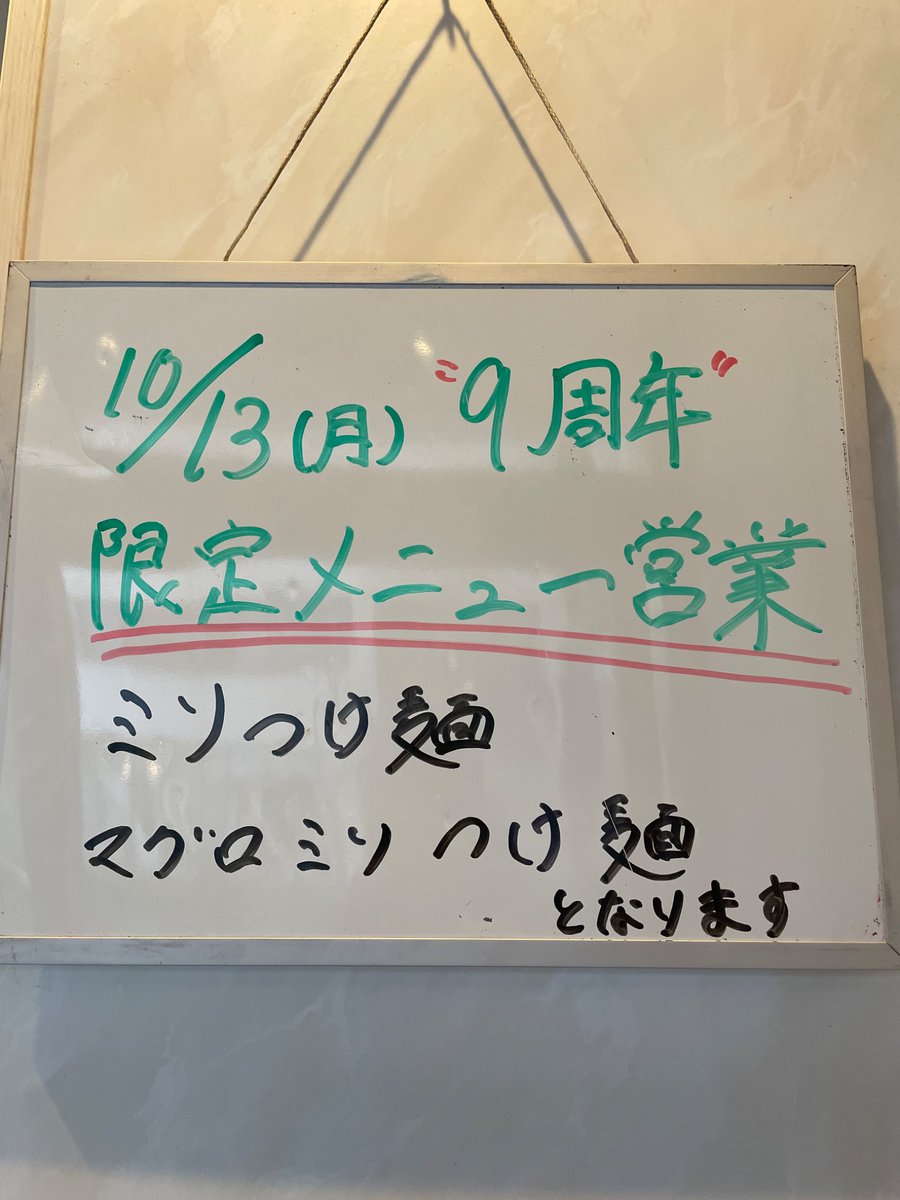 10/13(月) "9周年"
限定メニュー営業
ミソつけ麺
マグロミソつけ麺
となります